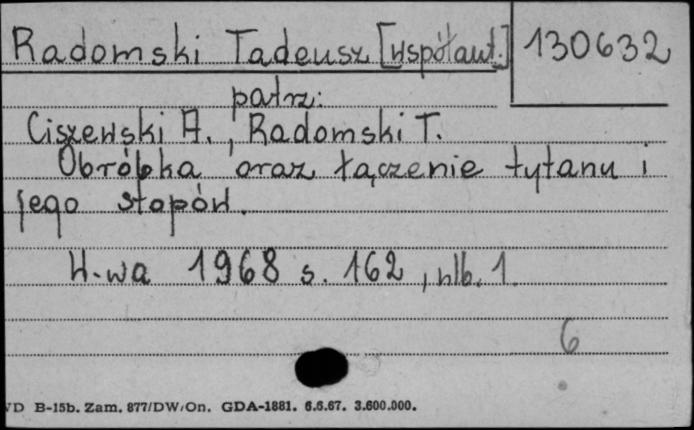 Radomski Tadeusz [współaut.] 130632
patrz:
Ciszewski A., Radomski T.
Obróbka oraz łączenie tytanu i
jego stopów.
W-wa 1968 s. 162, nlb. 1.
6
D B-15b. Zam. 877/DW/On. GDA-1881. 6.6.67. 3.600.000.